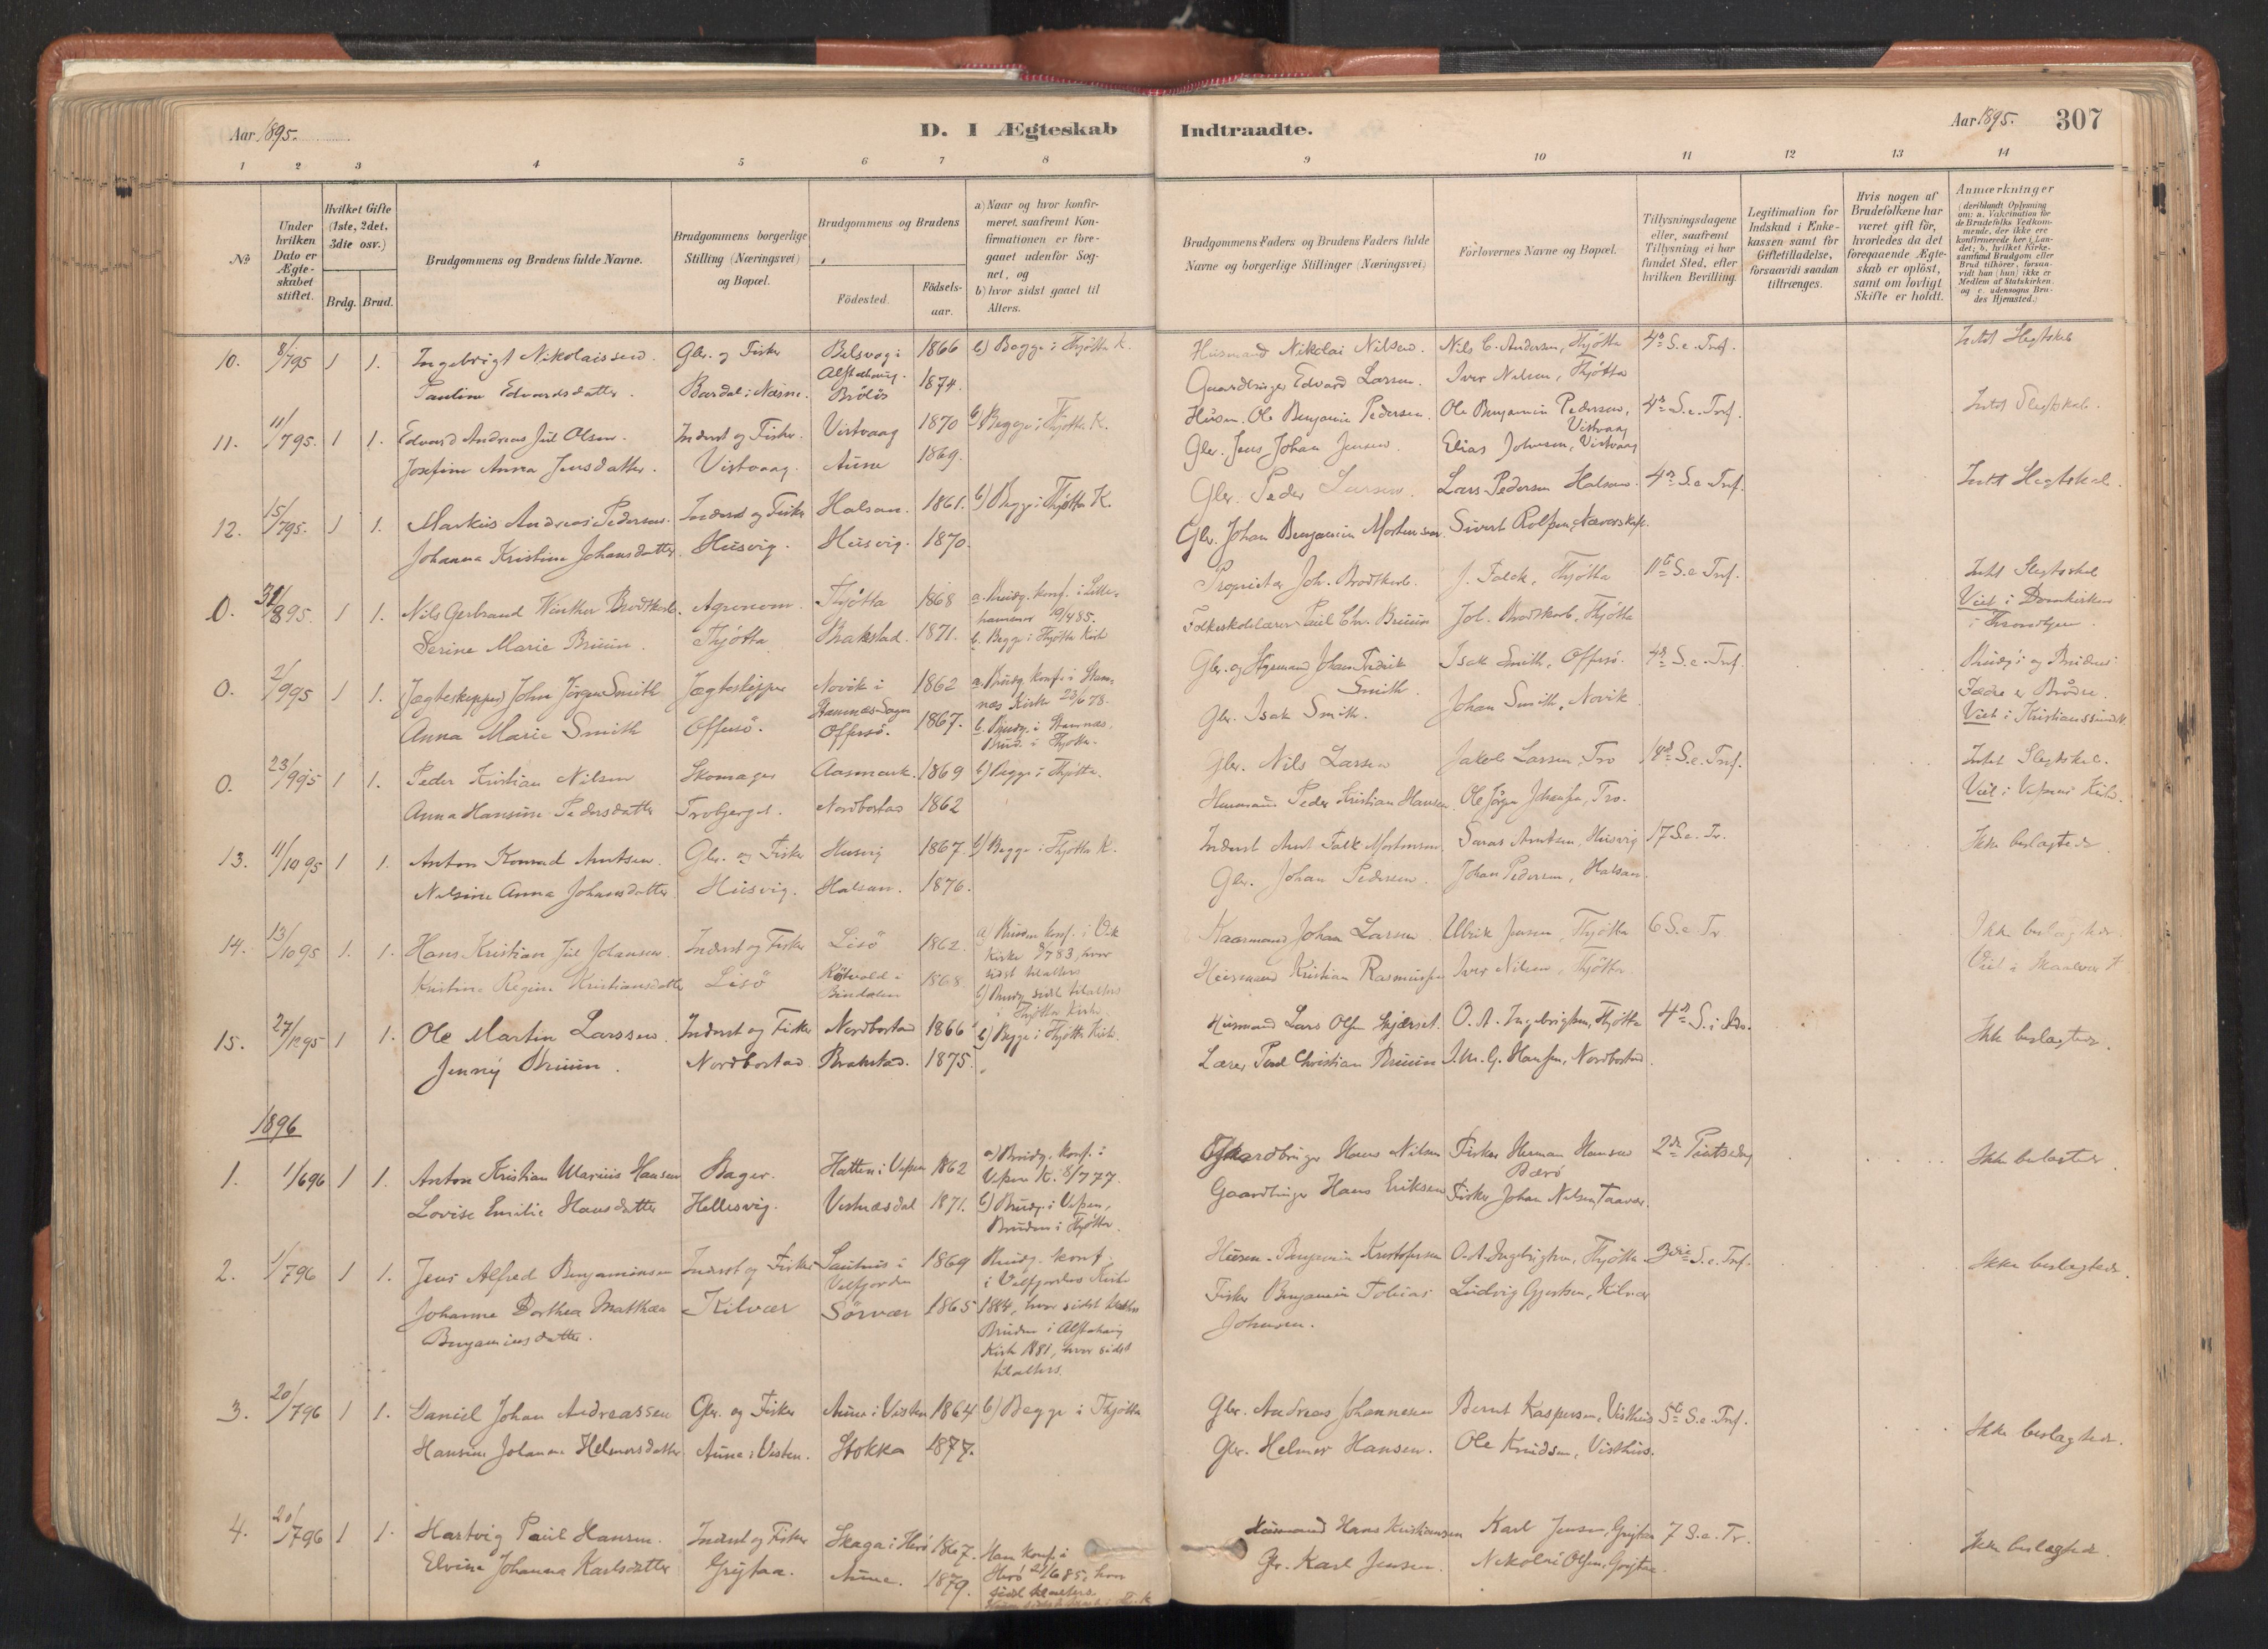 Aar 1895.
D. I Ægteskab Indtraadte.
Aar 1895. 307
1 2 3 4 5 6 7 8 9 10 11 12 13 14
No
Under hvilken Dato er Ægteskabet stiftet.
Hvilket Gifte (1ste, 2det, 3die osv.)
Brdg. Brud.
Brudgommens og Brudens fulde Navne.
Brudgommens borgerlige Stilling (Næringsvei) og Bopæl.
Brudgommens og Brudens
Födested. Födselsaar.
a) Naar og hvor konfirmeret, saafremt Konfirmationen er foregaaet udenfor Sognet, og
b) hvor sidst gaaet til Alters.
Brudgommens Faders og Brudens Faders fulde Navne og borgerlige Stillinger (Næringsvei)
Forlovernes Navne og Bopæl.
Tillysningsdagene eller, saafremt Tillysning ei har fundet Sted, efter hvilken Bevilling.
Legitimation for Indskud i Enkekassen samt for Giftetilladelse, forsaavidt saadan tiltrænges.
Hvis nogen af Brudefolkene har været gift før, hvorledes da det foregaaende Ægteskab er opløst, samt om lovligt Skifte er holdt.
Anmærkninger (deriblandt Oplysning om: a. Vakcination for de Brudefolks Vedkommende, der ikke ere konfirmerede her i Landet; b. hvilket Kirkesamfund Brudgom eller Brud tilhører, forsaavidt han (hun) ikke er Medlem af Statskirken, og c. udensogns Brudes Hjemsted.)
10. 8/795 1 1. Ingebrigt Nikolaissen. Gbr. og Fisker Belsvåg i Alstahaug. 1866 b) Begge i Thjøtta K. Husmand Nikolai Nilsen. Nils C. Andersen, Thjøtta 4de S. e. Tref. Intet Slegtskab
Pauline Edvardsdatter. Bardal i Næsne. Brölös 1874. Gaardbruger Edvard Larsen. Iver Nilsen, Thjøtta
11. 11/795. 1 1. Edvard Andreas Jul Olsen. Inderst og Fisker. Vistvaag 1870 b) Begge i Thjøtta K. Husm. Ole Benjamin Pedersen. Ole Benjamin Pedersen, Vistvaag 4de S. e. Tref. Intet Slegtskab.
Josefine Anna Jensdatter. Vistvaag. Aune 1869. Gbr. Jens Johan Jensen. Elias Johnsen, Vistvaag
12. 15/795. 1 1. Markus Andreas Pedersen. Inderst og Fisker Halsan. 1861. b) Begge i Thjøtta K. Gbr. Peder Larsen. Lars Pedersen Halsan. 4de S. e. Tref. Intet Slegtskab.
Johanna Kristine Johansdatter. Husvig. Husvig. 1870. Gbr. Johan Benjamin Mortensen. Sivert Rolfsen,
0. 1 1. Nils Gerbrand Winther Brodtkorb. Agronom. Thjøtta 1868 a. Brudg. konf. i Lillehammer 19/485. Proprietær Joh. Brodtkorb. J. Falck, Thjøtta 11te S. e. Tref. Intet Slegtskab
Serine Marie Bruun. Thjøtta Brakstad. 1871. b. Begge i Thjøtta Kirke Folkeskolelærer Paul Chr. Bruun Joh. Brodtkorb, Thjøtta Viet i Domkirken i Throndhjem.
0. 2/995 1 1. (Jægteskipper) John Jörgen Smith Jægteskipper Novik i Stamnes Sogn 1862 a. Brudg. konf. i Stamnæs Kirke 23/678. Gbr. og Styrmand Johan Fredrik Smith. Isak Smith, Offersö. 4de S. e. Tref. Brudg.s og Brudens Fædre er Brödre.
Anna Marie Smith Offersö. Offersö. 1867. b. Brudg. i Stamnæs. Brud. i Thjøtta. Gbr. Isak Smith. Johan Smith, Novik Viet i Kristianssund K.
0. 23/995 1 1. Peder Kristian Nilsen Skomager Aasmark. 1869 b) Begge i Thjøtta. Gbr. Nils Larsen Jakob Larsen, Tro S. e. Tref. Intet Slegtskab.
Anna Hansine Pedersdatter Trobjerget. Nordbostad 1862 Husmand Peder Kristian Hansen. Ole Jörgen Johansen, Tro. Viet i Vefsens Kirke.
13. 11/1095 1 1. Anton Konrad Arntsen. Gbr. og Fisker Husvig 1867. b) Begge i Thjøtta K. Inderst Arnt Falk Mortensen. Arntsen, Husvig 17 S. e. Tr. Ikke beslægtede.
Nelsine Anna Johansdatter Husvig. Halsan. 1876. Gbr. Johan Pedersen. Johan Pedersen, Halsan.
14. 13/1095 1. 1. Hans Kristian Juel Johansen. Inderst og Fisker Lisö 1862. a) Bruden konf. i Vik Kirke 8/783, hvor sidst tilalters Kaarmand Johan Larsen Ulrik Jensen, Thjøtta 6 S. e. Tr Ikke beslægtede.
Kristine Regine Kristiansdatter Lisö i Bindalen 1868 b) Brudg. sidst tilalters i Thjøtta Kirke. Husmand Kristian Rasmussen Iver Nilsen, Thjøtta Viet i Skaalvær K
15. 27/1295 1 1. Ole Martin Larssen. Inderst og Fisker Nordbostad 1866 b) Begge i Thjøtta Kirke. Husmand Lars Olsen Skjærset. O. A. Ingebrigtsen, Thjøtta 4de S. i Adv. Ikke beslægtede.
Jenny Bruun. Nordbostad Brakstad. 1875. Lærer Paul Christian Bruun J. M. G. Hansen, Nordbostad.
1896
1. 1/696 1 1. Anton Kristian Marius Hansen Bager. Hatten i Vefsen 1862 a) Brudg. konf. i Vefsen K. 8/777. Gaardbruger Hans Nilsen Fisker Herman Hansen Bærö 2den Pintsedag Ikke beslægtede.
Lovise Emilie Hansdatter Hellesvig. Vestnæsdal 1871. b) Brudg. i Vefsen, Bruden i Thjøtta. Gaardbruger Hans Eriksen Fisker Johan Nilsen,
2. 1/796 1 1. Jens Alfred Benjaminsen Inderst og Fisker Sausnes i Velfjorden 1869 Brudg. konf. i Velfjordens Kirke Husm. Benjamin Kristofersen O. A. Ingebrigtsen, Thjøtta 3die S. e. Tref. Ikke beslægtede.
Johanna Dorthea Matthæa Kilvær Sörvær 1865 1884, hvor sidst tilalters Fisker Benjamin Tobias Ludvig Gjertsen, Kilvær
Benjaminsdatter. Bruden i Alstahaug Kirke 1881, hvor sidst tilalters. Johnsen.
3. 20/796 1 1. Daniel Johan Andreassen Gbr. og Fisker Aune i Visten 1864 b) Begge i Thjøtta Gbr. Andreas Johannesen Bernt Kaspersen, Visthus 5te S. e. Tref. Ikke beslægtede.
Hansine Johanna Helmersdatter Aune i Visten. Stokka 1877. Gbr. Helmer Hansen. Ole Knudsen, Visthus.
4. 20/796 1 1. Hartvig Paul Hansen. Inderst og Fisker Skaga i Herö 1867. Ham konf. i Herö 21/685, hvor sidst tilalters. Husmand Hans Kristiansen Karl Jensen, Grytaa 7 S. e. Tr. Ikke beslægtede.
Elvine Johanna Karlsdatter Grytaa. Aune. 1879. Gbr. Karl Jensen. Nikolai Olsen, Grytaa.